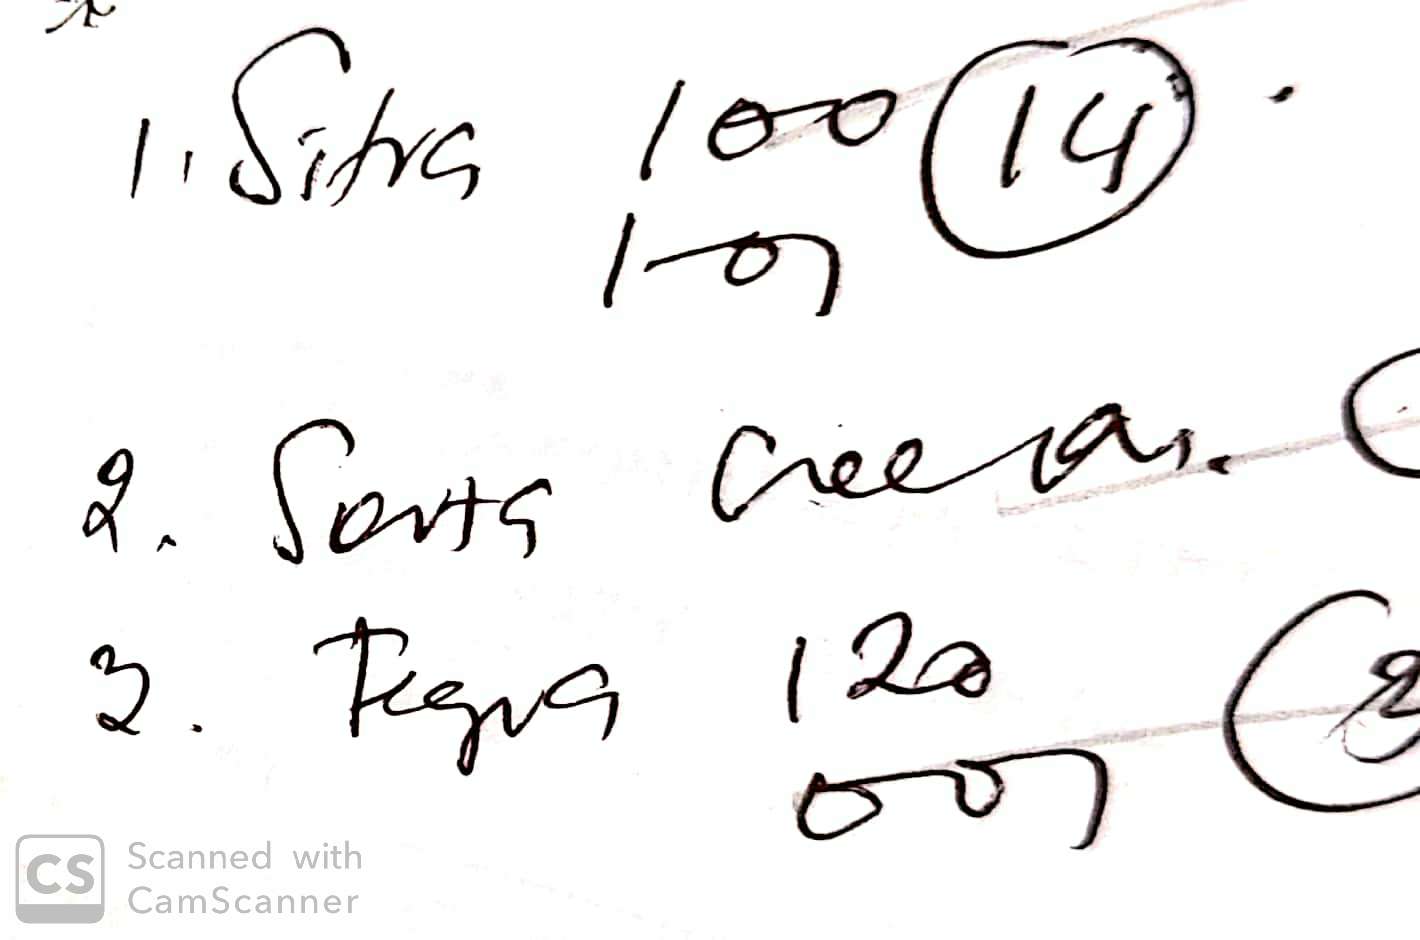 1. Sitra 100 14
1-0-1
2. Sorta
3. Tegra 120
0-0-1
CS Scanned with
CamScanner